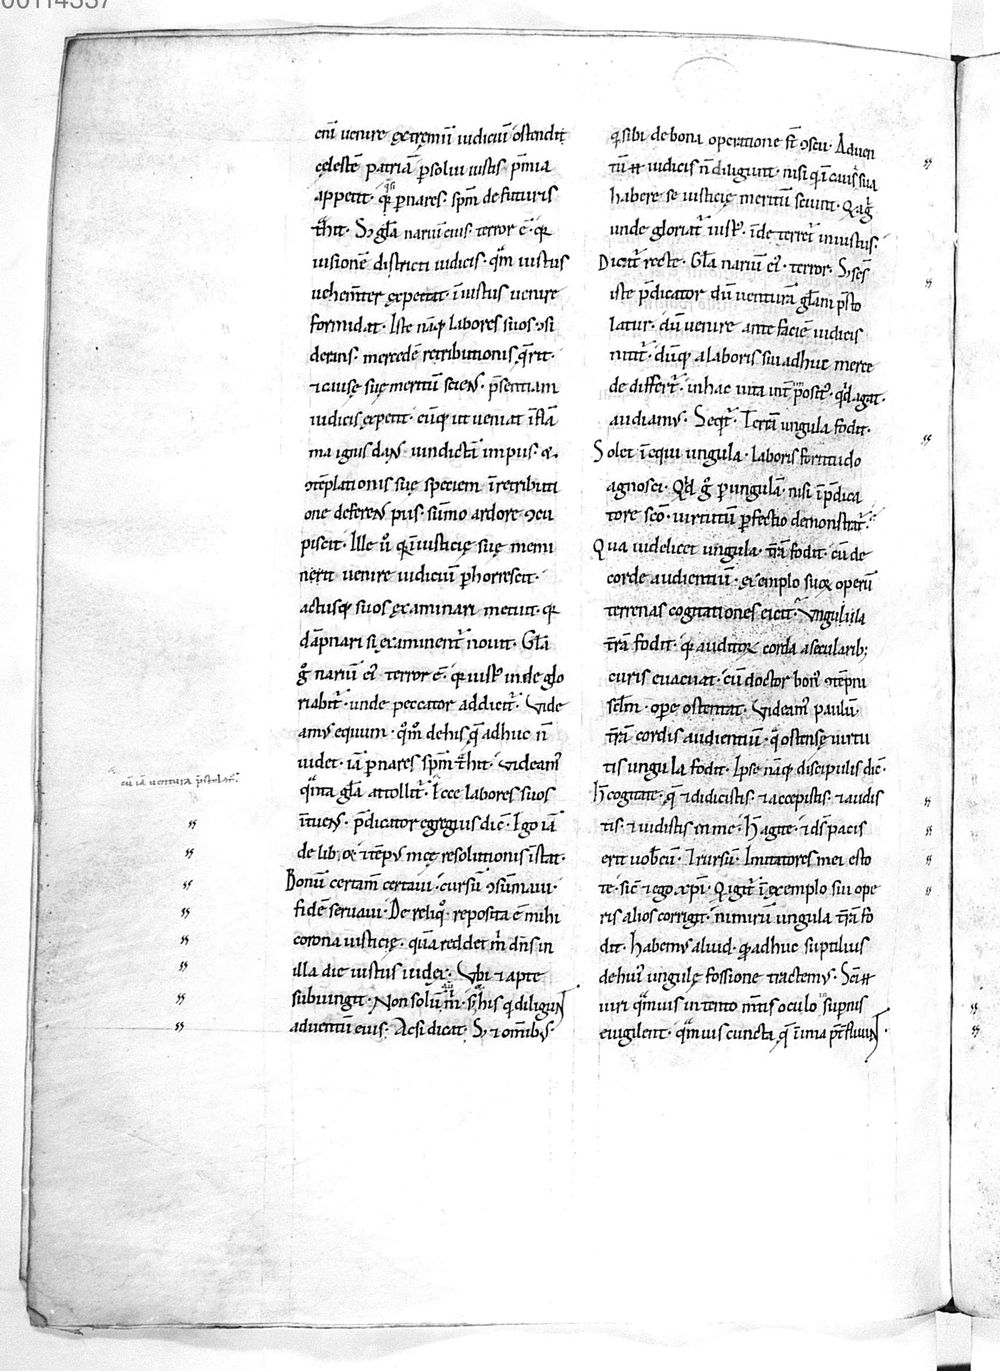 00114337
eni uenire extremū iudiciū ostendit
cęlestē patriā psolui iustis pmia
appetit. qsi p nares. spm de futuris
thit. S; gla nariū eius. terror ē. qa
uisionē districti iudicis. qm iustus
uehemter expectat. iniustus uenire
formidat. Iste nāq; labores suos ɔsi
derans. mercedē retributionis qrit.
⁊ causę suę meritū sciens. psentiam
iudicis expetit. cūq; ut ueniat ī flā
ma ignis dans uindictā impiis. &
ɔtēplationis suę speciem ī retributi
one deferens piis. sūmo ardore ɔcu
piscit. Ille u q iniusticię suę memi
nerit uenire iudiciū phorrescit.
actusq; suos examinari metuit. qa
dāpnari si examinent nouit. Gla
g nariū ei terror ē. qa iust inde glo
riabit. unde peccator addicit. Vide
amus equum. qm de his q adhuc n
uidet. iā p nares spm thit. Videam
qnta gla attollit. Ecce labores suos
ītuens. pdicator egregius dic. Ego iā
delibor. ⁊ tēpus meę resolutionis īstat.
Bonū certam certaui. cursū ɔsūmaui.
fidē seruaui. De reliq reposita ē mihi
corona iusticię. quā reddet m dns in
illa die iustus iudex. Vbi ⁊ apte
subiungit. Non solū aū m. s; ⁊ his q diligunt
aduentū eius. Acsi dicat. S; ⁊ omibus
cū iā ventura pstolat.
q sibi de bona operatione st ɔscii. Aduen
tū iudicis n diligunt. nisi q ī causa sua
habere se iusticię meritū sciunt. Qa g
unde gloriat iust. īde terret iniustus.
Dicit recte. Gla nariū ei. terror. S; ses
iste pdicator dū venturā glam psto
latur. dū uenire ante faciē iudicis
nitit. dūq; a laboris sui adhuc merce
de differt. in hac uita int posit. qd agat.
audiamus. Seqt. Terrā ungula fodit.
Solet ī equi ungula. laboris fortitudo
agnosci. Qd g p ungulā. nisi ī pdica
tore sco. uirtutū pfectio demonstrat.
Qua uidelicet ungula. trā fodit. cū de
corde audientiū. exemplo suoꝝ operū
terrenas cogitationes eicit. Vngula
trā fodit. qa auditoꝝ corda a secularib;
curis euacuat. cū doctor bon ɔtēptū
sclm ope ostentat. Videam paulū.
trā cordis audientiū. q ostensę uirtu
tis ungula fodit. Ipse nāq; discipulis dic.
H cogitate. q ⁊ didicistis. ⁊ accepistis. ⁊ audis
tis. ⁊ uidistis in me. H agite. ⁊ ds pacis
erit uobcū. Et rursū. Imitatores mei esto
te. sic ⁊ ego xpi. Q igit ī exemplo sui ope
ris alios corrigit. nimirū ungula trā fo
dit. Habemus aliud. q adhuc suptilius
de hui ungulę fossione tractemus. Sci
uiri qmuis intento mtis oculo ī supnis
euigilent. qmuis cuncta q ī ima pfluunt